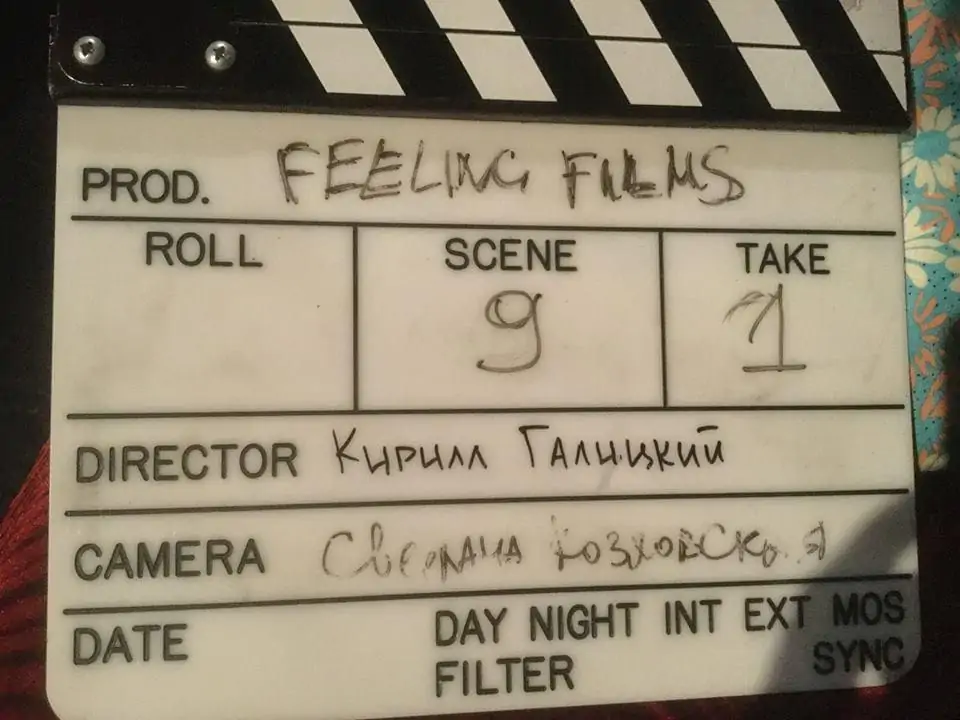 PROD. FEELING FILMS
ROLL SCENE TAKE
9 1
DIRECTOR Кирилл Галицкий
CAMERA Светлана Козловская
DATE DAY NIGHT INT EXT MOS
FILTER SYNC